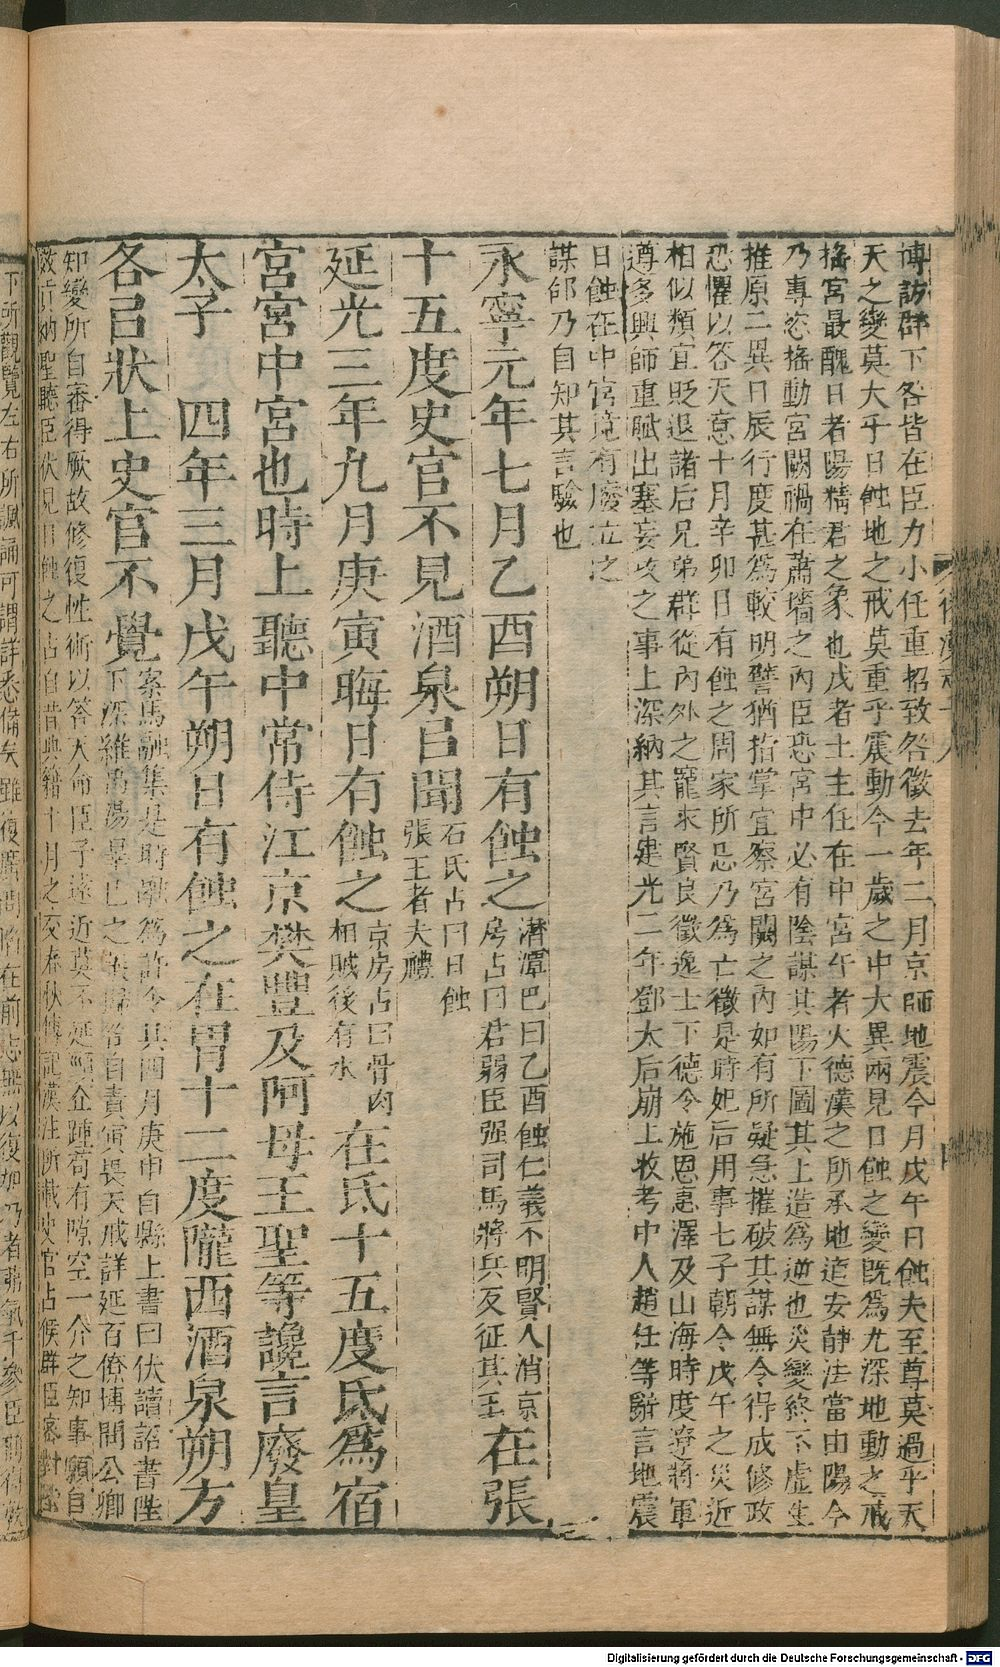 博訪群下咎皆在臣力小任重招致咎徵去年二月京師地震今月戊午日蝕夫至尊莫過乎天
天之變莫大乎日蝕地之戒莫重乎震動今一歲之中大異兩見日蝕之變既為尤深地動之戒
搖宮最醜日者陽精君之象也戊者土主任在中宮午者火德漢之所承地道安靜法當由陽今
乃專恣搖動宮闕禍在蕭牆之內臣恐宮中必有陰謀其陽下圖其上造為逆也災變終不虛生
推原二異日辰行度甚為較明譬猶指掌宜察宮闕之內如有所疑急摧破其謀無令得成修政
恐懼以答天意十月辛卯日有蝕之周家所忌乃為亡徵是時妃后用事七子朝令戊午之災近
相似類宜貶退諸后兄弟群從內外之寵求賢良徵逸士下德令施恩惠澤及山海時度遼將軍
遵多興師重賦出塞妄攻之事上深納其言建光二年鄧太后崩上收考中人趙任等辭言地震
日蝕在中宮竟有廢立之
謀邰乃自知其言驗也
永寧元年七月乙酉朔日有蝕之
潛潭巴曰乙酉蝕仁義不明賢人消京
房占曰君弱臣强司馬將兵反征其王
在張
十五度史官不見酒泉㠯聞
石氏占曰日蝕
張王者失禮
延光三年九月庚寅晦日有蝕之
京房占曰骨肉
相賊後有水
在氐十五度氐為宿
宮宮中宮也時上聽中常侍江京樊豐及阿母王聖等讒言廢皇
太子 四年三月戊午朔日有蝕之在胃十二度隴西酒泉朔方
各㠯狀上史官不覺
案馬融集是時融為許令其四月庚申自縣上書曰伏讀詔書陛
下深維禹湯罪己之義歸咎自責寅畏天戒詳延百僚博問公卿
知變所自審得厥故修復往術以答天命臣子遠近莫不延頸企踵苟有隙空一介之知事願自
效貢納聖聽臣伏見日蝕之占自昔典籍十月之交春秋傳記漢注所載史官占候群臣密對陛
下所觀覽左右所諷誦可謂詳悉備矣雖復廣問
Digitalisierung gefördert durch die Deutsche Forschungsgemeinschaft - DFG